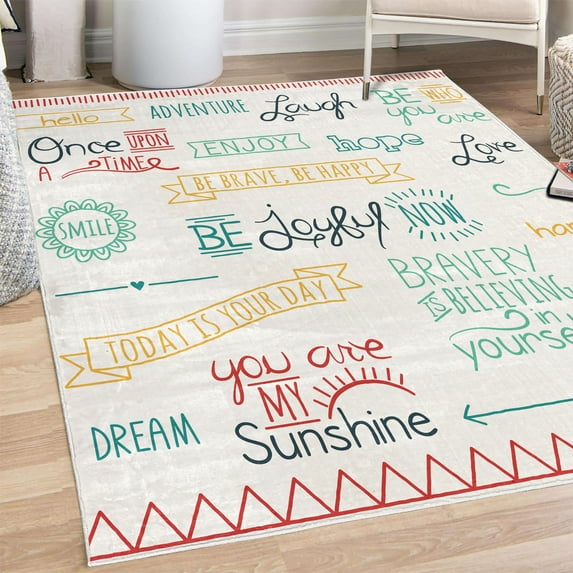 hello
ADVENTURE
Laugh
BE WHO
you are
Once UPON
A TIME
ENJOY
hope
Love
BE BRAVE, BE HAPPY
SMILE
BE Joyful NOW
BRAVERY
IS BELIEVING
in
yourse
TODAY IS YOUR DAY
you are
MY
Sunshine
DREAM